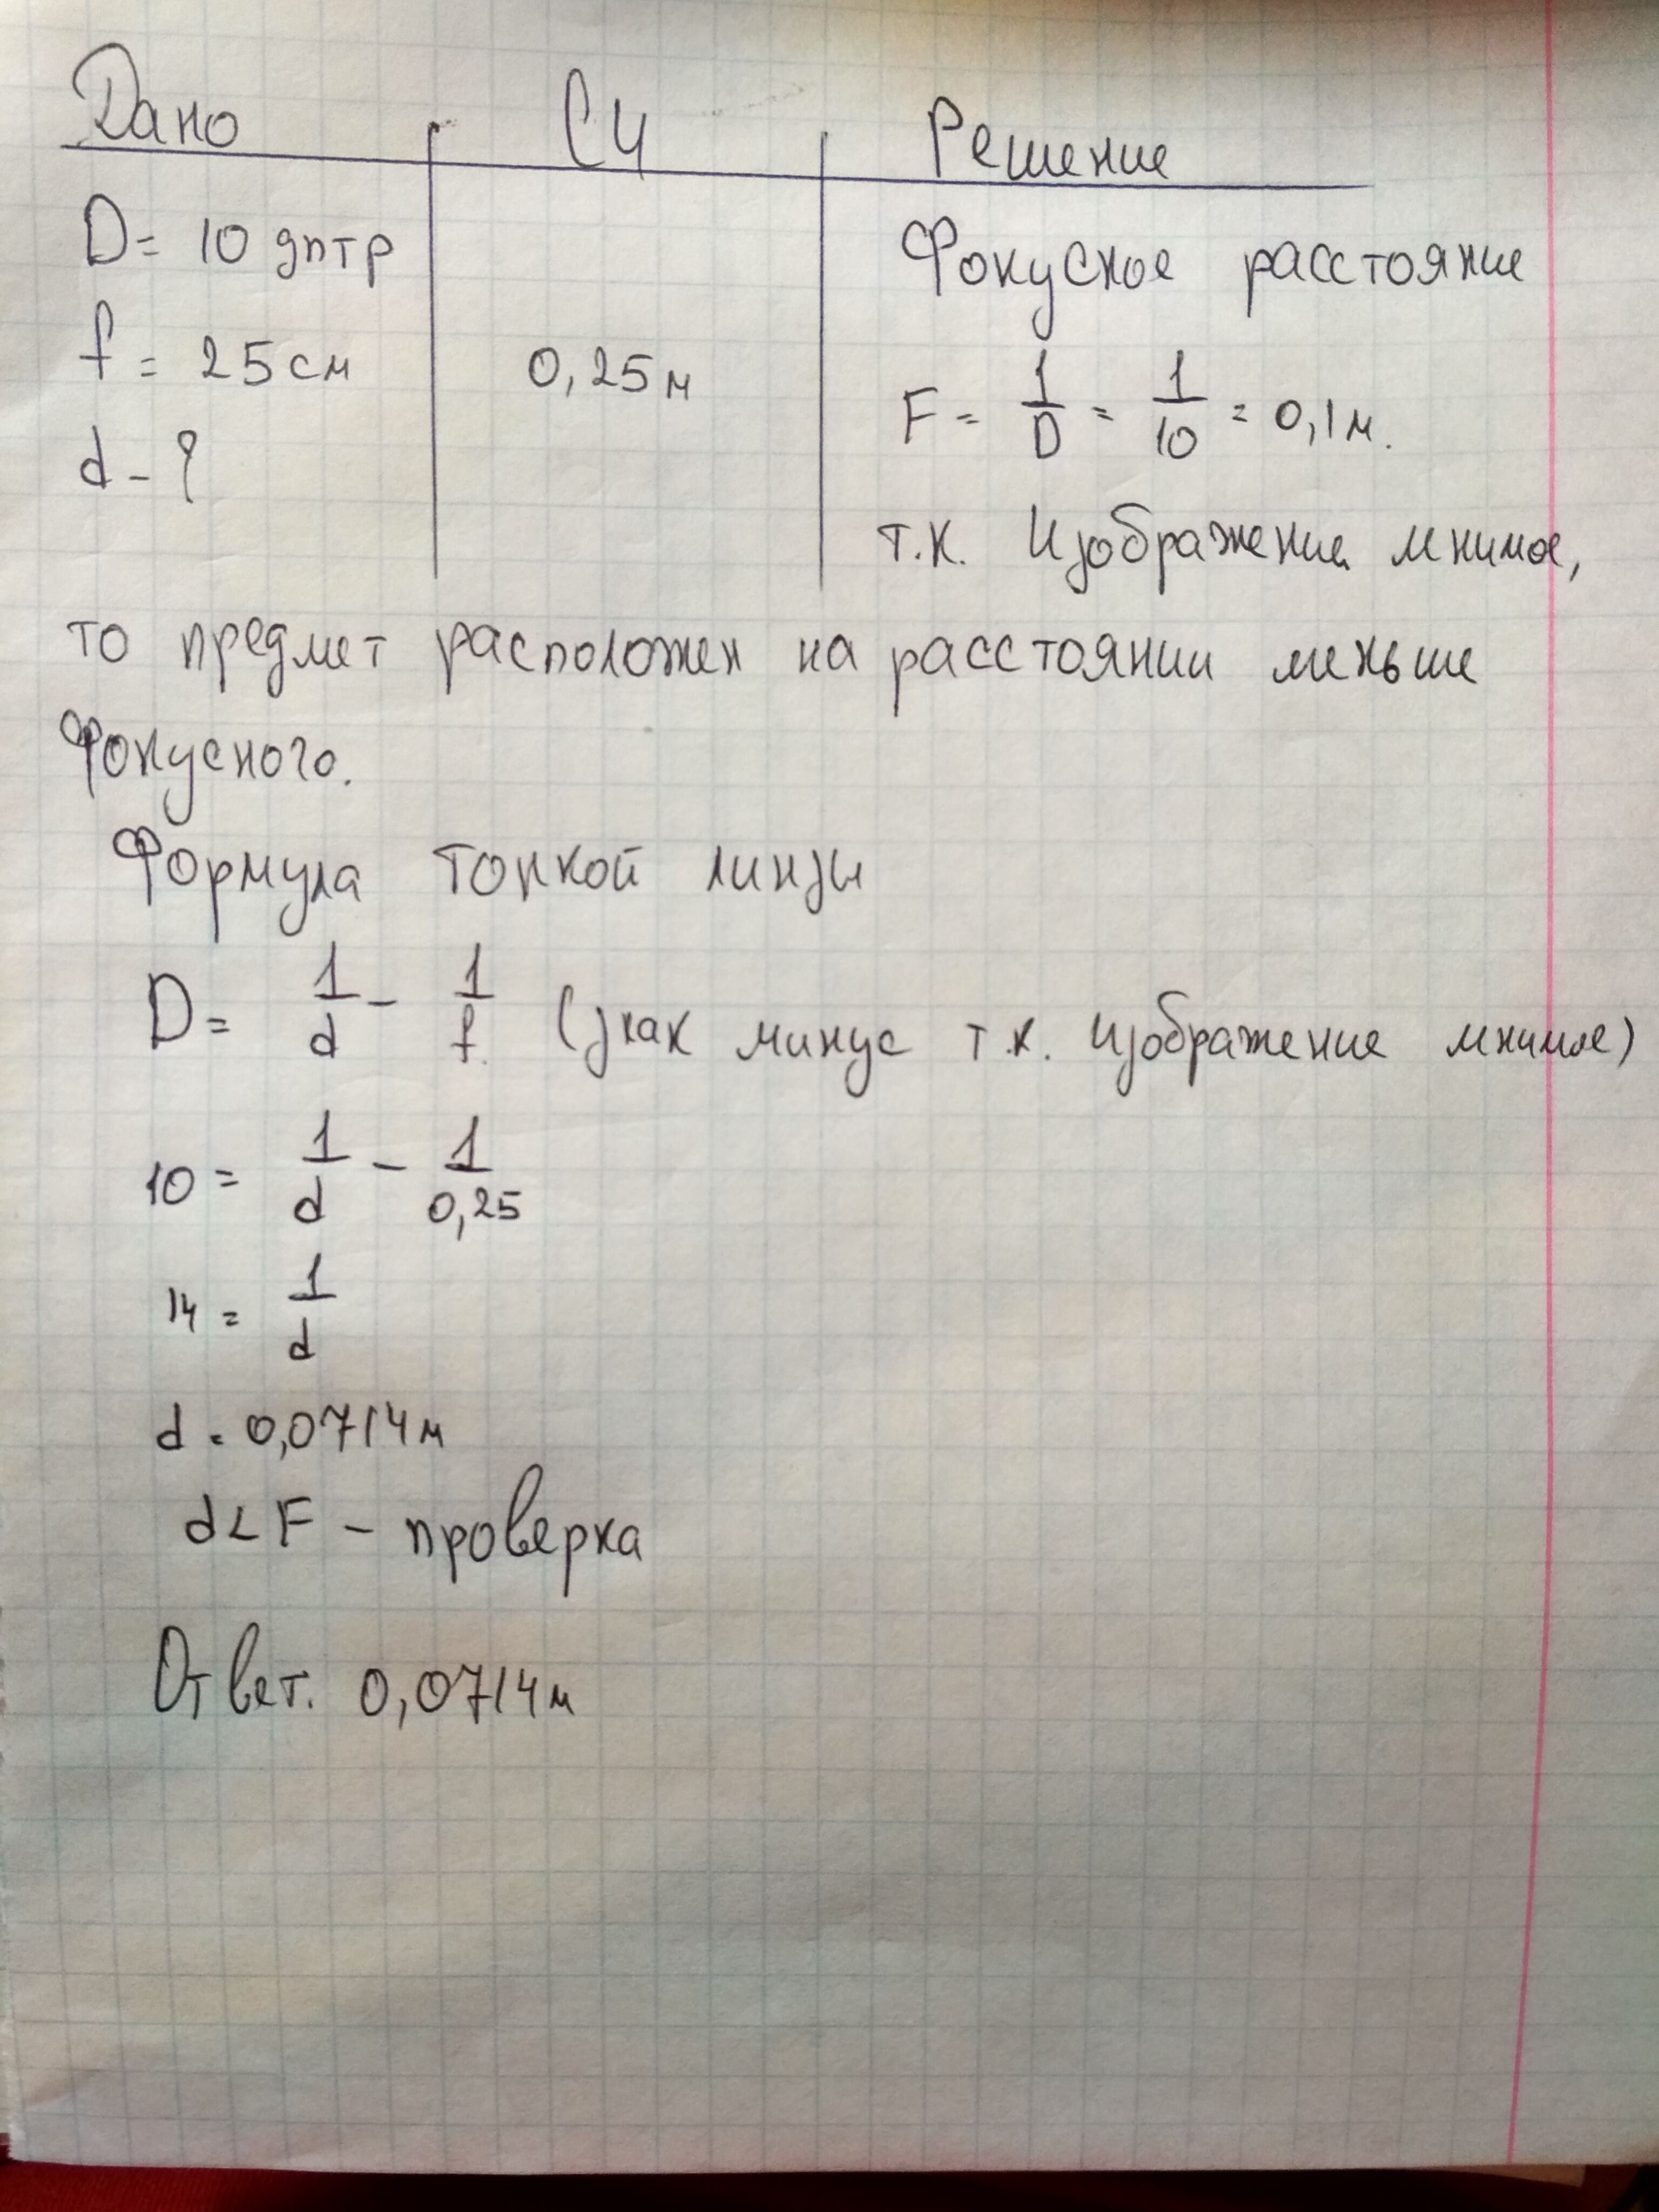 Дано СИ Решение
D = 10 дптр
f = 25 см 0,25 м
d - ?
Фокусное расстояние
F = 1/D = 1/10 = 0,1 м.
т.к. Изображение мнимое,
то предмет расположен на расстоянии меньше
фокусного.
Формула тонкой линзы
D = 1/d - 1/f (знак минус т.к. изображение мнимое)
10 = 1/d - 1/0,25
14 = 1/d
d = 0,0714 м
d < F - проверка
Ответ. 0,0714 м